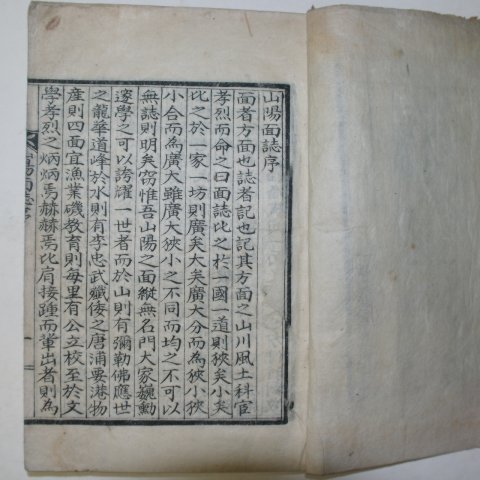 山陽面誌序
面者方面也誌者記也記其方面之山川風土科宦
孝烈而命之曰面誌比之於一國一道則狹矣小矣
比之於一家一坊則廣矣大矣廣大分而為狹小狹
小合而為廣大雖廣大狹小之不同而均之不可以
無誌則明矣窃惟吾山陽之面縱無名門大家巍勳
邃學之可以誇耀一世者而於山則有彌勒佛應世
之龍華道峰於水則有李忠武殲倭之唐浦要港物
産則四面宜漁業磯教育則每里有公立校至於文
學孝烈之炳炳焉赫赫焉比肩接踵而輩出者則為
山陽面誌序
一